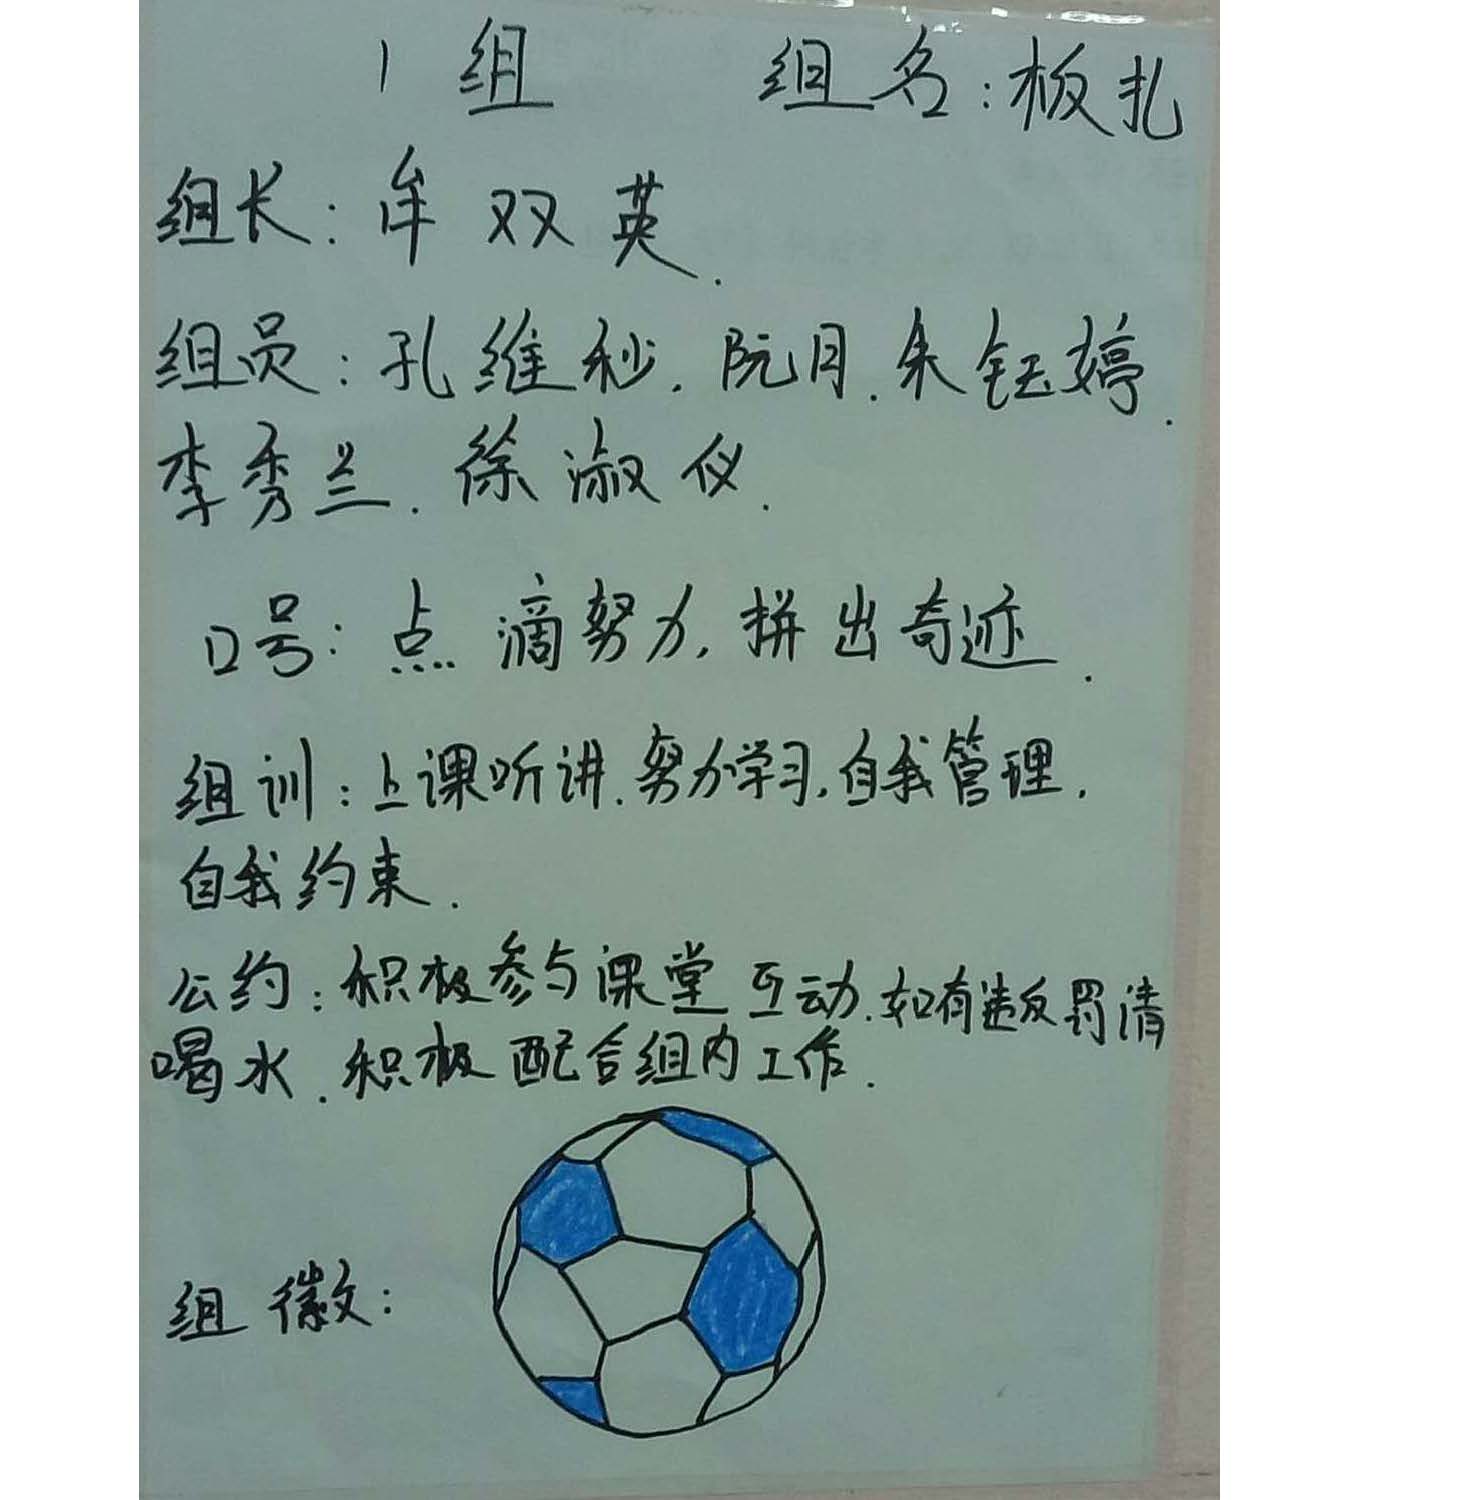 1组 组名:板扎
组长:牟双英.
组员:孔维秒.阮月.朱钰婷.
李秀兰.徐淑仪.
口号:点滴努力,拼出奇迹.
组训:上课听讲.努力学习,自我管理.
自我约束.
公约:积极参与课堂互动.如有违反罚清
喝水.积极配合组内工作.
组徽: